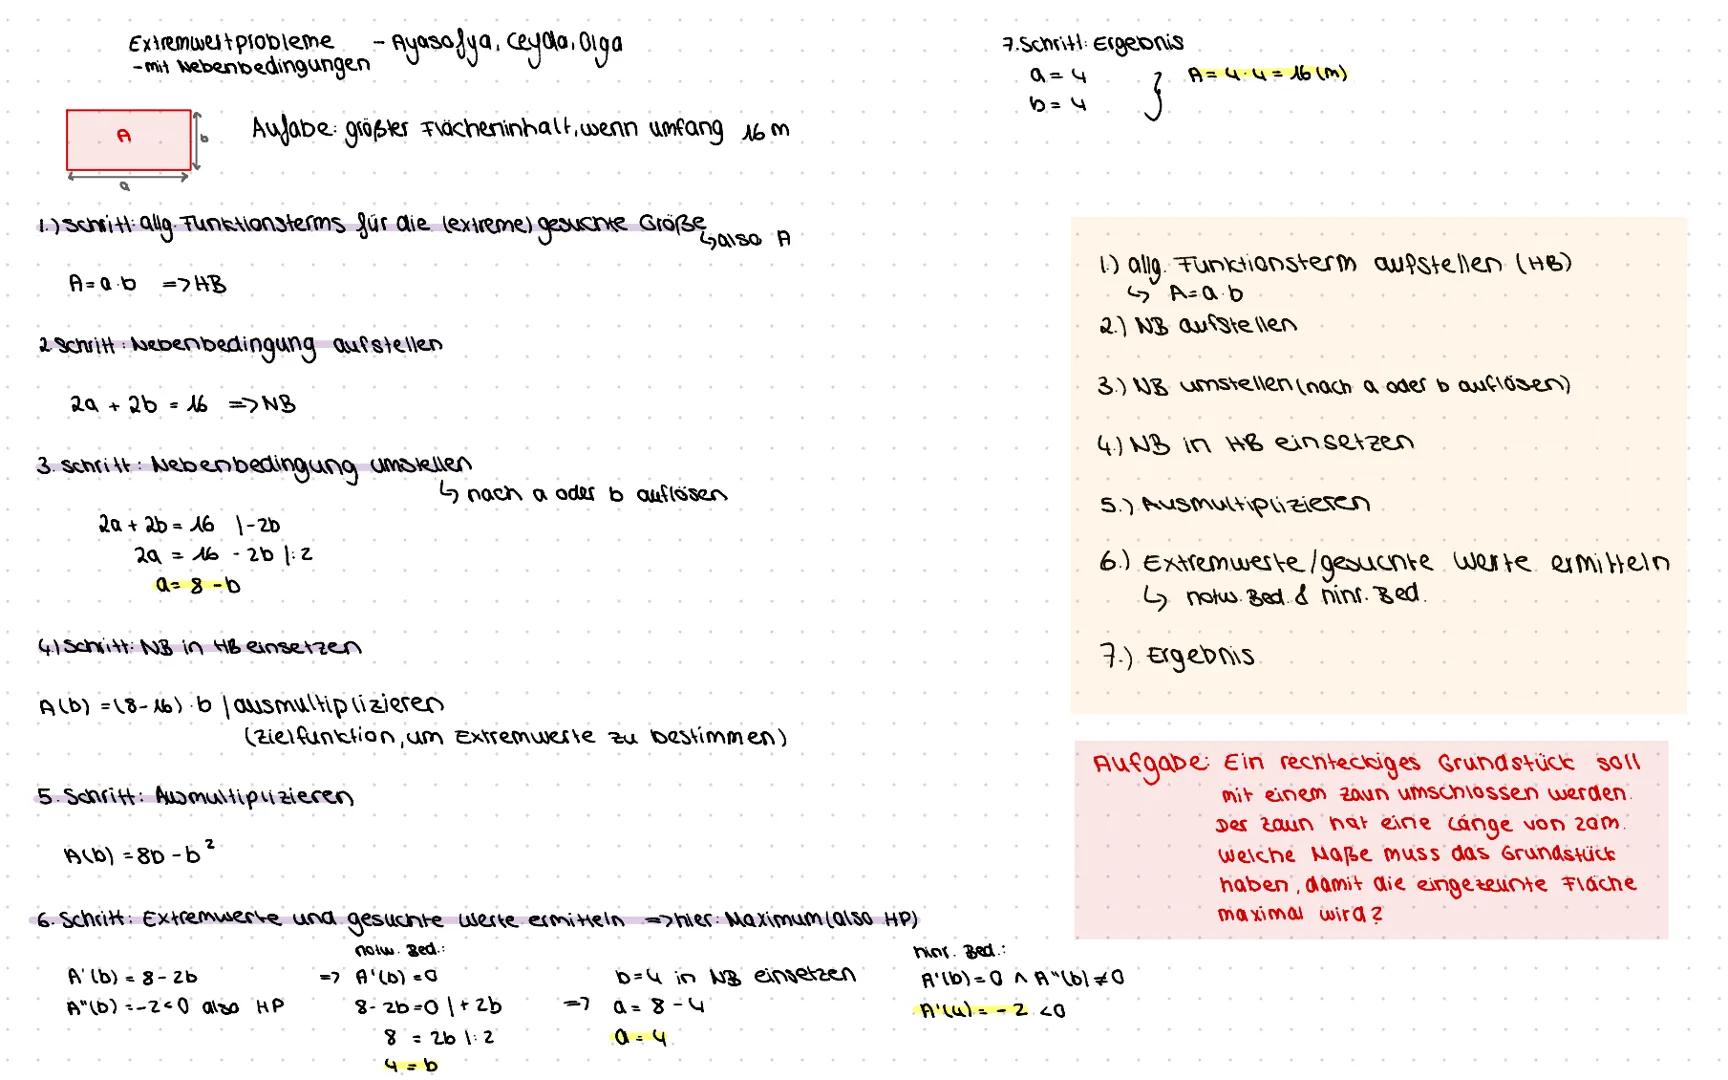 Extremwertprobleme - Ayasofya, Ceyda, Olga
- mit Nebenbedingungen
A
b
a
Aufabe: größter Flächeninhalt, wenn umfang 16 m
1.) Schritt: allg. Funktionsterms für die (extreme) gesuchte Größe
↳ also A
A = a·b => HB
2 Schritt: Nebenbedingung aufstellen
2a + 2b = 16 => NB
3. Schritt: Nebenbedingung umstellen
↳ nach a oder b auflösen
2a + 2b = 16 |-2b
2a = 16 - 2b |:2
a = 8 - b
4.) Schritt: NB in HB einsetzen
A(b) = (8-16)·b | ausmultiplizieren
(Zielfunktion, um Extremwerte zu bestimmen)
5. Schritt: Ausmultiplizieren
A(b) = 8b - b²
6. Schritt: Extremwerte und gesuchte Werte ermitteln => hier: Maximum (also HP)
A'(b) = 8 - 2b
A"(b) = -2 < 0 also HP
notw. Bed.:
=> A'(b) = 0
8 - 2b = 0 | + 2b
8 = 2b |:2
4 = b
b = 4 in NB einsetzen
=> a = 8 - 4
a = 4
hinr. Bed.:
A'(b) = 0 ∧ A"(b) ≠ 0
A'(4) = -2 < 0
7. Schritt: Ergebnis
a = 4
b = 4
} A = 4·4 = 16 (m)
1.) allg. Funktionsterm aufstellen (HB)
↳ A = a·b
2.) NB aufstellen
3.) NB umstellen (nach a oder b auflösen)
4.) NB in HB einsetzen
5.) Ausmultiplizieren
6.) Extremwerte/gesuchte Werte ermitteln
↳ notw. Bed. & hinr. Bed.
7.) Ergebnis
Aufgabe: Ein rechteckiges Grundstück soll
mit einem Zaun umschlossen werden.
Der Zaun hat eine Länge von 20m.
Welche Maße muss das Grundstück
haben, damit die eingezeunte Fläche
maximal wird?